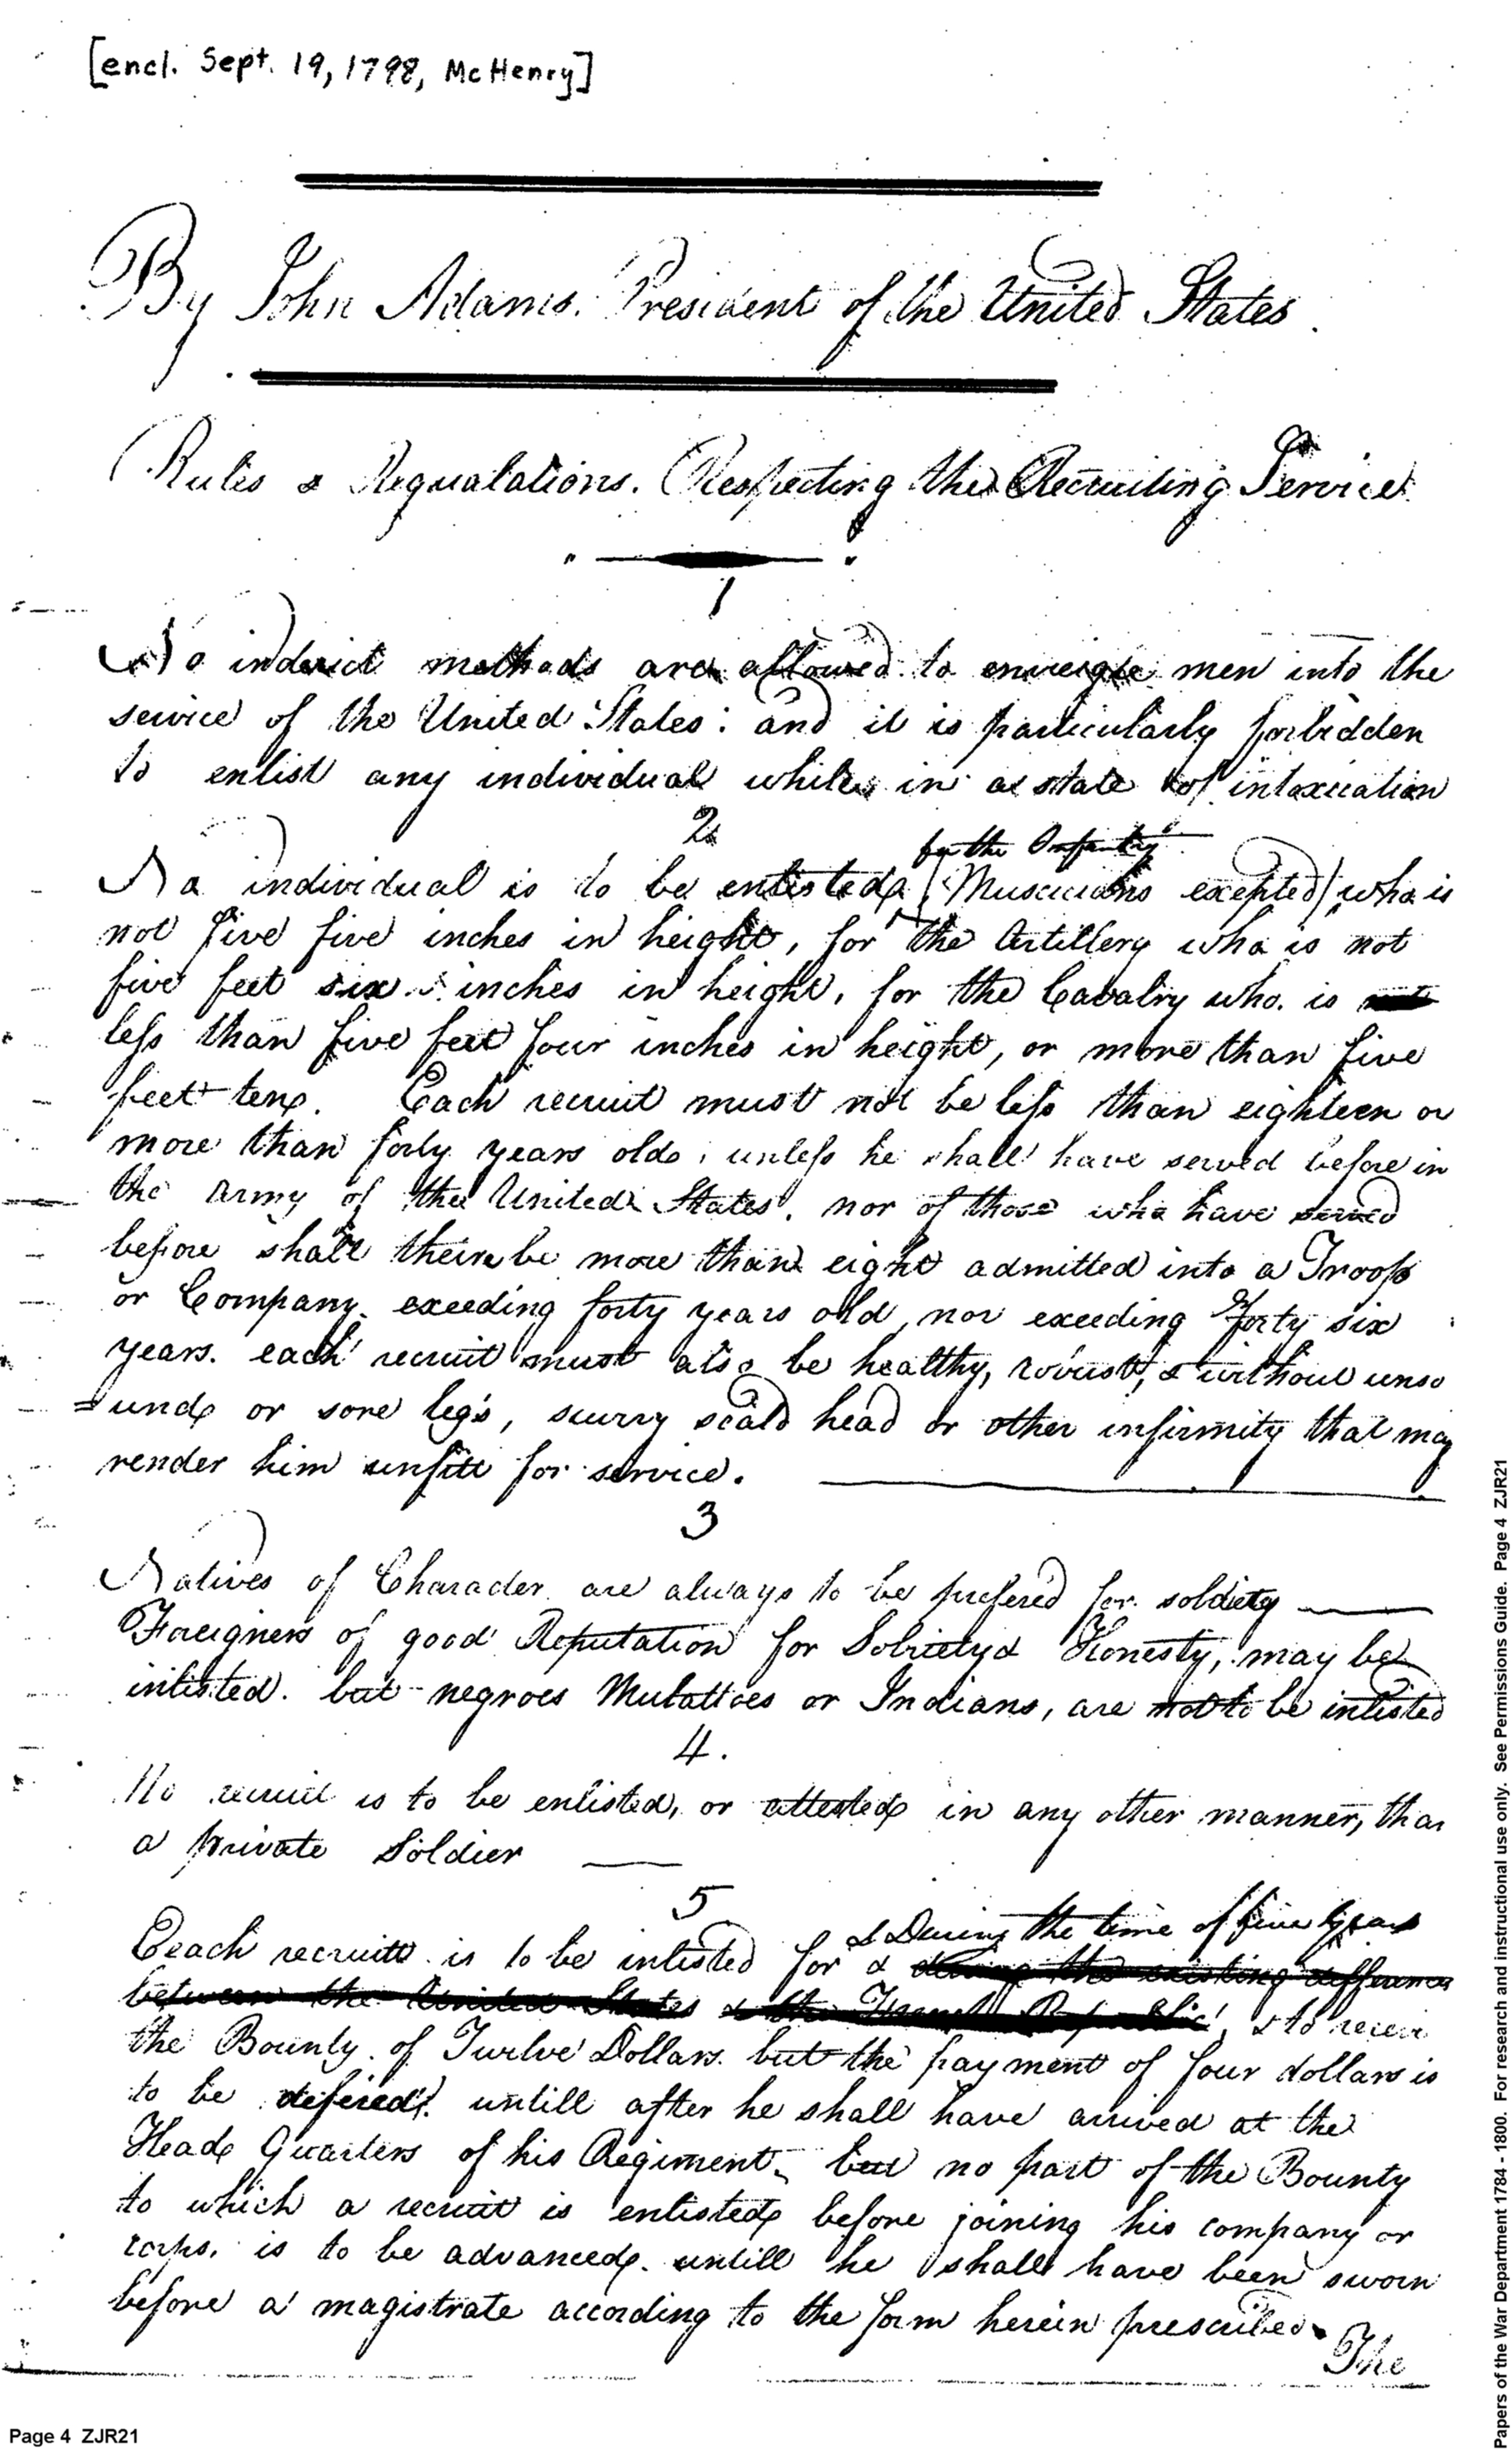 [encl. Sept. 19, 1798, McHenry]
By John Adams. President of the United States.
Rules & Regualations. Respecting the Recruiting Service
1
No inderict methods are allowed to enveigle men into the
service of the United States: and it is particularly forbidden
to enlist any individual while in a state of intoxication
2
for the Infantry
No individual is to be enlisted (Musicians excepted) who is
not five five inches in height, for the Artillery who is not
five feet six inches in height, for the Cavalry who is not
less than five feet four inches in height, or more than five
feet ten. Each recruit must not be less than eighteen or
more than forty years old, unless he shall have served before in
the Army of the United States, nor of those who have served
before shall their be more than eight admitted into a Troop
or Company exeeding forty years old, nor exeeding forty six
years. each recruit must also be healthy, robust, & without unso
=und or sore leg's, scurvy scald head or other infirmity that may
render him unfitt for service.
3
Natives of Character are always to be prefered for soldiery
Foreigners of good Reputation for Sobriety & Honesty, may be
inlisted. but negroes Mulattoes or Indians, are not to be inlisted
4.
No recruit is to be enlisted, or attested in any other manner, than
a private Soldier
5
& During the time of five Years
Each recruitt is to be inlisted for & during the existing differences
between the United States & the French Republic, & to receive
the Bounty of Twelve Dollars. but the payment of four dollars is
to be defered untill after he shall have arrived at the
Head Quarters of his Regiment, but no part of the Bounty
to which a recruit is enlisted before joining his company or
corps, is to be advanced. untill he shall have been sworn
before a magistrate according to the form herein prescribed.
The
Page 4 ZJR21
Papers of the War Department 1784 - 1800. For research and instructional use only. See Permissions Guide. Page 4 ZJR21